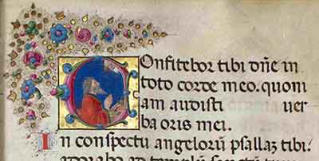 Confitebor tibi dñe in
toto corde meo. quoni
am audisti uer
ba oris mei.
In conspectu angelorũ psallaʒ tibi.